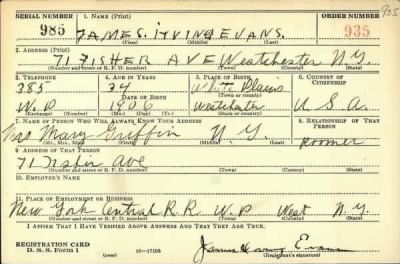 935
SERIAL NUMBER 1. NAME (Print) ORDER NUMBER
985 JAMES. IRVING EVANS. 935
(First) (Middle) (Last)
2. ADDRESS (Print)
71 FISHER AVE Westchester N.Y.
(Number and street or R. F. D. number) (Town) (County) (State)
3. TELEPHONE 4. AGE IN YEARS 5. PLACE OF BIRTH 6. COUNTRY OF CITIZENSHIP
385 34 White Plains
DATE OF BIRTH (Town or county)
W.P. 1906 Westchester U.S.A.
(Exchange) (Number) (Mo.) (Day) (Yr.) (State or country)
7. NAME OF PERSON WHO WILL ALWAYS KNOW YOUR ADDRESS 8. RELATIONSHIP OF THAT PERSON
Mrs. Mary Griffin N.Y. Roomer
(Mr., Mrs., Miss) (First) (Middle) (Last)
9. ADDRESS OF THAT PERSON
71 Fisher Ave
(Number and street or R. F. D. number) (Town) (County) (State)
10. EMPLOYER'S NAME
11. PLACE OF EMPLOYMENT OR BUSINESS
New York Central R.R. W.P. West N.Y.
(Number and street or R. F. D. number) (Town) (County) (State)
I AFFIRM THAT I HAVE VERIFIED ABOVE ANSWERS AND THAT THEY ARE TRUE.
REGISTRATION CARD
D. S. S. Form 1 (over) 16—17105 James Irving Evans